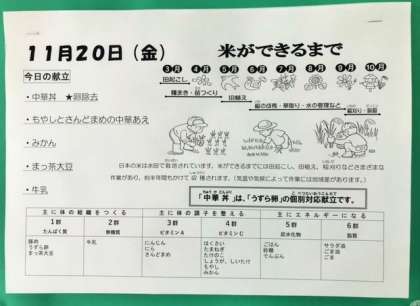 11月20日(金)
米ができるまで
今日の献立
3月 4月 5月 6月 7月 8月 9月 10月
田起こし
種まき・苗つくり
田植え
稲の成長・草取り・水の管理など
稲刈り
・中華丼 ★卵除去
・もやしとさんどまめの中華あえ
・みかん
・まっ茶大豆
・牛乳
日本の米は水田で栽培されています。米ができるまでには田起こし、田植え、稲刈りなどさまざまな
作業があり、約半年間もかけて収穫されます。(気温や気候によって作業には地域差があります。)
「中華丼」は、「うずら卵」の個別対応献立です。
主に体の組織をつくる 主に体の調子を整える 主にエネルギーになる
1群 2群 3群 4群 5群 6群
たんぱく質 無機質 ビタミンA ビタミンC 炭水化物 脂質
豚肉 牛乳 にんじん はくさい ごはん サラダ油
うずら卵 にら たまねぎ 砂糖 ごま油
まっ茶大豆 さんどまめ たけのこ でんぷん ごま
しょうが、しいたけ
もやし
みかん